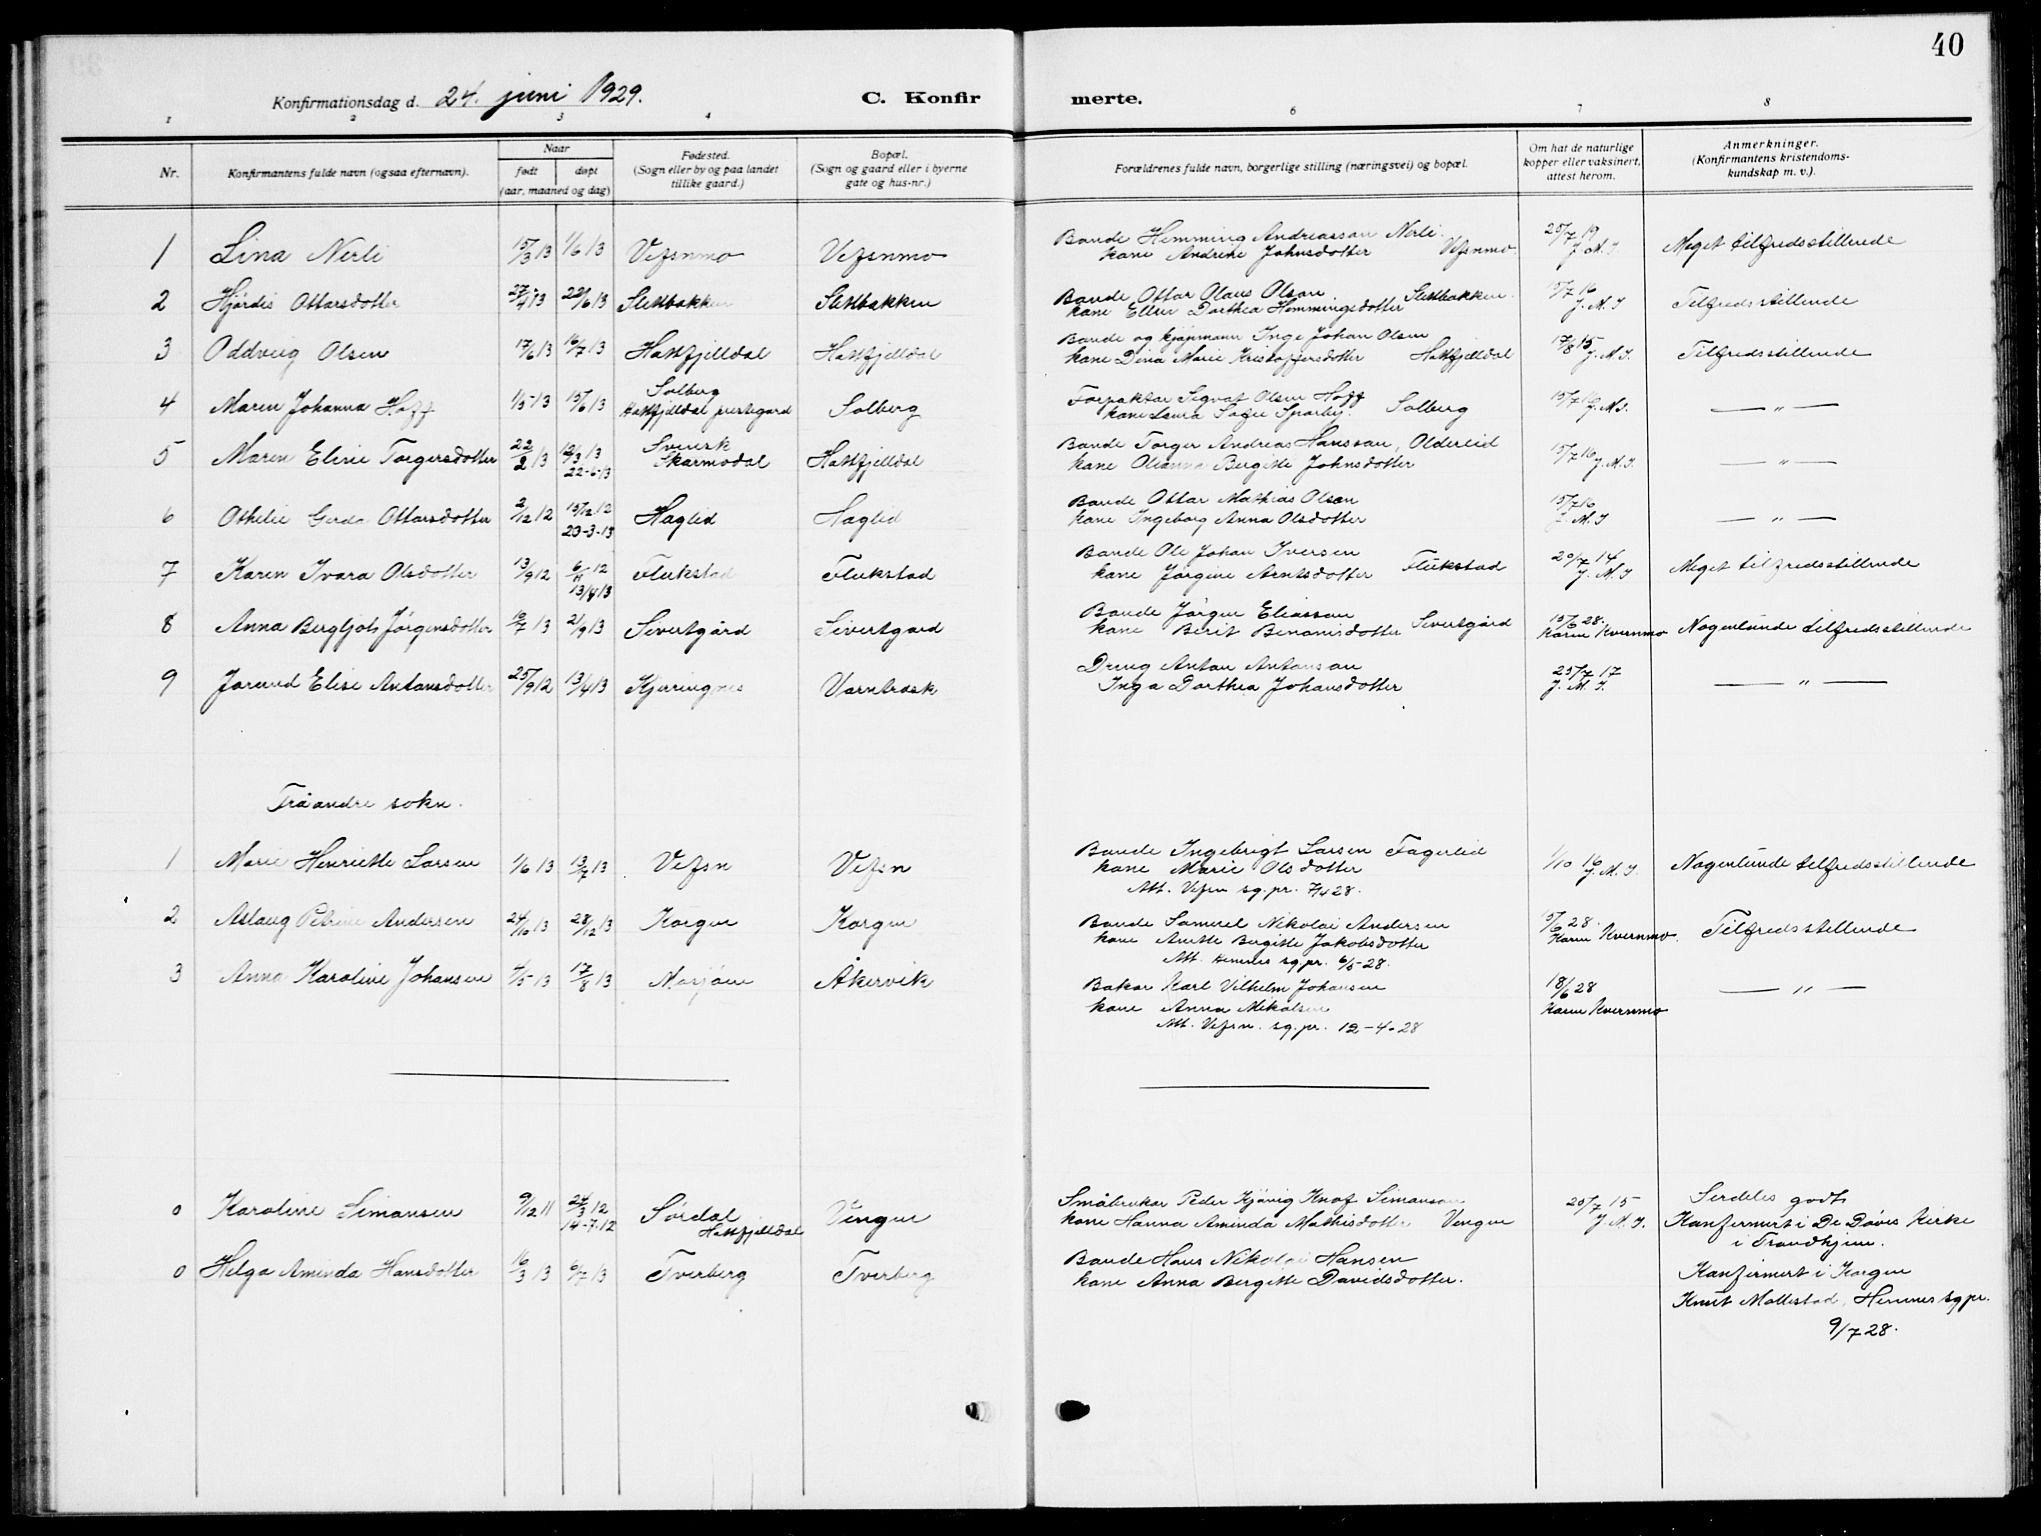 40
Konfirmationsdag d. 24. juni 1929. C. Konfir merte.
1 2 3 4 6 7 8
Nr. Konfirmantens fulde navn (ogsaa efternavn). Naar født døpt (aar, maaned og dag) Fødested. (Sogn eller by og paa landet tillike gaard.) Bopæl. (Sogn og gaard eller i byerne gate og hus-nr.) Forældrenes fulde navn, borgerlige stilling (næringsvei) og bopæl. Om hat de naturlige kopper eller vaksinert, attest herom. Anmerkninger. (Konfirmantens kristendoms- kundskap m. v.).
1 Lina Nerli 15/3 13 1/6 13 Vefsnmo Vefsnmo Bonde Hemming Andreassan Nerli 25/7 19
kone Andrine Johnsdotter Vefsnmo. J.M.I Meget tilfredsstillende
2 Hjørdis Ottarsdotter 27/4 13 22/6 13 Slettbakken Slettbakken Bonde Ottar Olaus Olsen Slettbakken. 15/7 16
kone Ellen Dorthea Hemmingsdotter J.M.I Tilfredsstillende
3 Oddveig Olsen 17/6 13 16/7 13 Hattfjelldal Hattfjelldal Bonde og kjøpmann Inge Johan Olsen 17/8 15
kone Dina Marie Kristoffersdotter Hattfjelldal J.M.I. Tilfredsstillende
4 Maren Johanna Hoff 1/5 13 15/6 13 Solberg Hattfjelldal prestegard Solberg Forpaktar Sigvat Olsen Hoff 15/7 16
kone Laura Sofie Sparby. Solberg J.M.I. — " —
5 Maren Eline Torgersdotter 22/2 13 12/3 13 22-6-13 Svensk Skarmodal Hattfjelldal Bonde Torger Andreas Hanssan, Olderlid 15/7 16
kone Olianna Bergitte Johnsdotter J.M.I. — " —
6 Othelie Gerda Ottarsdotter 2/12 12 15/12 12 23-3-13 Haglid Haglid Bonde Ottar Mathias Olsen 15/7 16
kone Ingeborg Anna Olsdotter J.M.I — " —
7 Karen Ivara Olsdotter 13/9 12 6/11 12 13/4 13 Flekstad Flekstad Bonde Ole Johan Iversen 20/7 14
kone Jørgine Arntsdotter Flekstad J.M.I Meget tilfredsstillende
8 Anna Bergljot Jørgensdotter 16/7 13 21/9 13 Sivertgård Sivertgard Bonde Jørgen Eliassan 15/6 28.
kone Berit Benonisdotter Sivertgård Karen Kvernmo Nogenlunde tilfredsstillende
9 Jorund Elise Antonsdotter 25/9 12 13/4 13 Kjerringnes Varntresk Dreng Anton Antonsan 25/7 17
Inga Dorthea Johansdotter J.M.I. — " —
Frå andre sokn.
1 Marie Henriette Larsen 1/6 13 13/7 13 Vefsn Vefsn Bonde Ingebrigt Larsen Fagerlid 1/10 16
kone Marie Olsdotter J.M.I. Nogenlunde tilfredsstillende
Att. Vefsn sg.pr. 7/4 28.
2 Aslaug Petrine Andersen 24/10 13 28/12 13 Korgen Korgen Bonde Samuel Nikolai Andersen 15/6 28.
kone Anette Bergitte Jakobsdotter Karen Kvernmo. Tilfredsstillende
Att. Hemnes sg.pr. 6/5-28.
3 Anna Karoline Johansen 4/5 13 17/8 13 Mosjøen Åkervik Bakar Karl Vilhelm Johansen 18/6 28
kone Anna Mikalsen Karen Kvernmo — " —
Att. Vefsn. sg.pr. 12-4-28
0 Karoline Simonsen 9/12 11 24/3 12 14-7-12 Sørdal Hattfjelldal Vengen Småbrukar Peder Kjønig Knof Simonsan 20/7 15 Serdeles godt
kone Hanna Aminda Mathisdotter Vengen J.M.I. Konfirmert i De Døves Kirke
i Trondhjem.
0 Helga Aminda Hansdotter 16/3 13 6/7 13 Tverberg Tverberg Bonde Hans Nikolai Hansen
kone Anna Bergitte Davidsdotter. Konfirmert i Korgen
Knut Mollestad, Hemnes sgpr.
9/7 28.